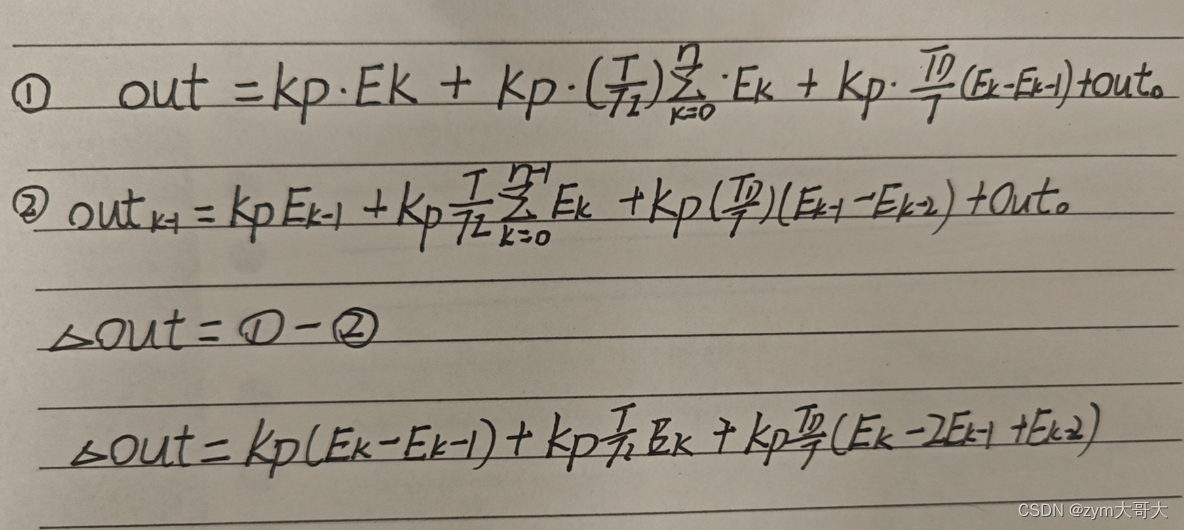 ① out = kp·Ek + kp·(T/TI) n∑k=0 ·Ek + kp·TD/T (Ek-Ek-1)+out₀
② outk-1 = kpEk-1 + kp T/TI n-1∑k=0 Ek + kp(TD/T)(Ek-1-Ek-2)+out₀
△out = ① - ②
△out = kp(Ek-Ek-1) + kp T/TI Ek + kp TD/T (Ek-2Ek-1+Ek-2)
CSDN @zym大哥大